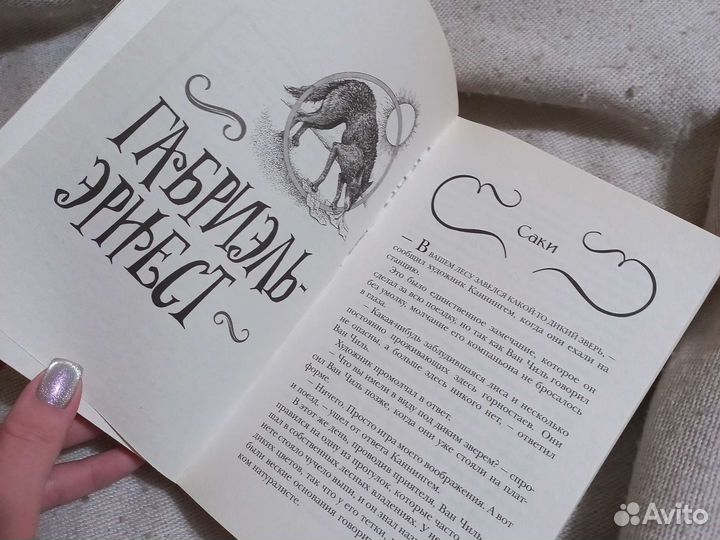 ГАБРИЭЛЬ-
ЭРНЕСТ
Саки
– В ВАШЕМ ЛЕСУ ЗАВЕЛСЯ КАКОЙ-ТО ДИКИЙ ЗВЕРЬ, –
сообщил художник Каннингем, когда они ехали на
станцию.
Это было единственное замечание, которое он
сделал за всю поездку, но так как Ван Чиль говорил
без умолку, молчание его компаньона не бросалось
в глаза.
– Какая-нибудь заблудившаяся лиса и несколько
постоянно проживающих здесь горностаев. Они
не опасны, а больше здесь никого нет, – ответил
Ван Чиль.
Художник промолчал в ответ.
– Что вы имели в виду под диким зверем? – спро-
сил Ван Чиль позже, когда они уже стояли на плат-
форме.
– Ничего. Просто игра моего воображения. А вот
и поезд, – ушел от ответа Каннингем.
В этот же день, проводив приятеля, Ван Чиль
правился на одну из прогулок, которые часто
шал в собственных лесных владениях. У не
нете стояло чучело выпи, и он знал назв
диких цветов, так что у его тетки,
были веские основания говорит
ком натуралисте.
Avito